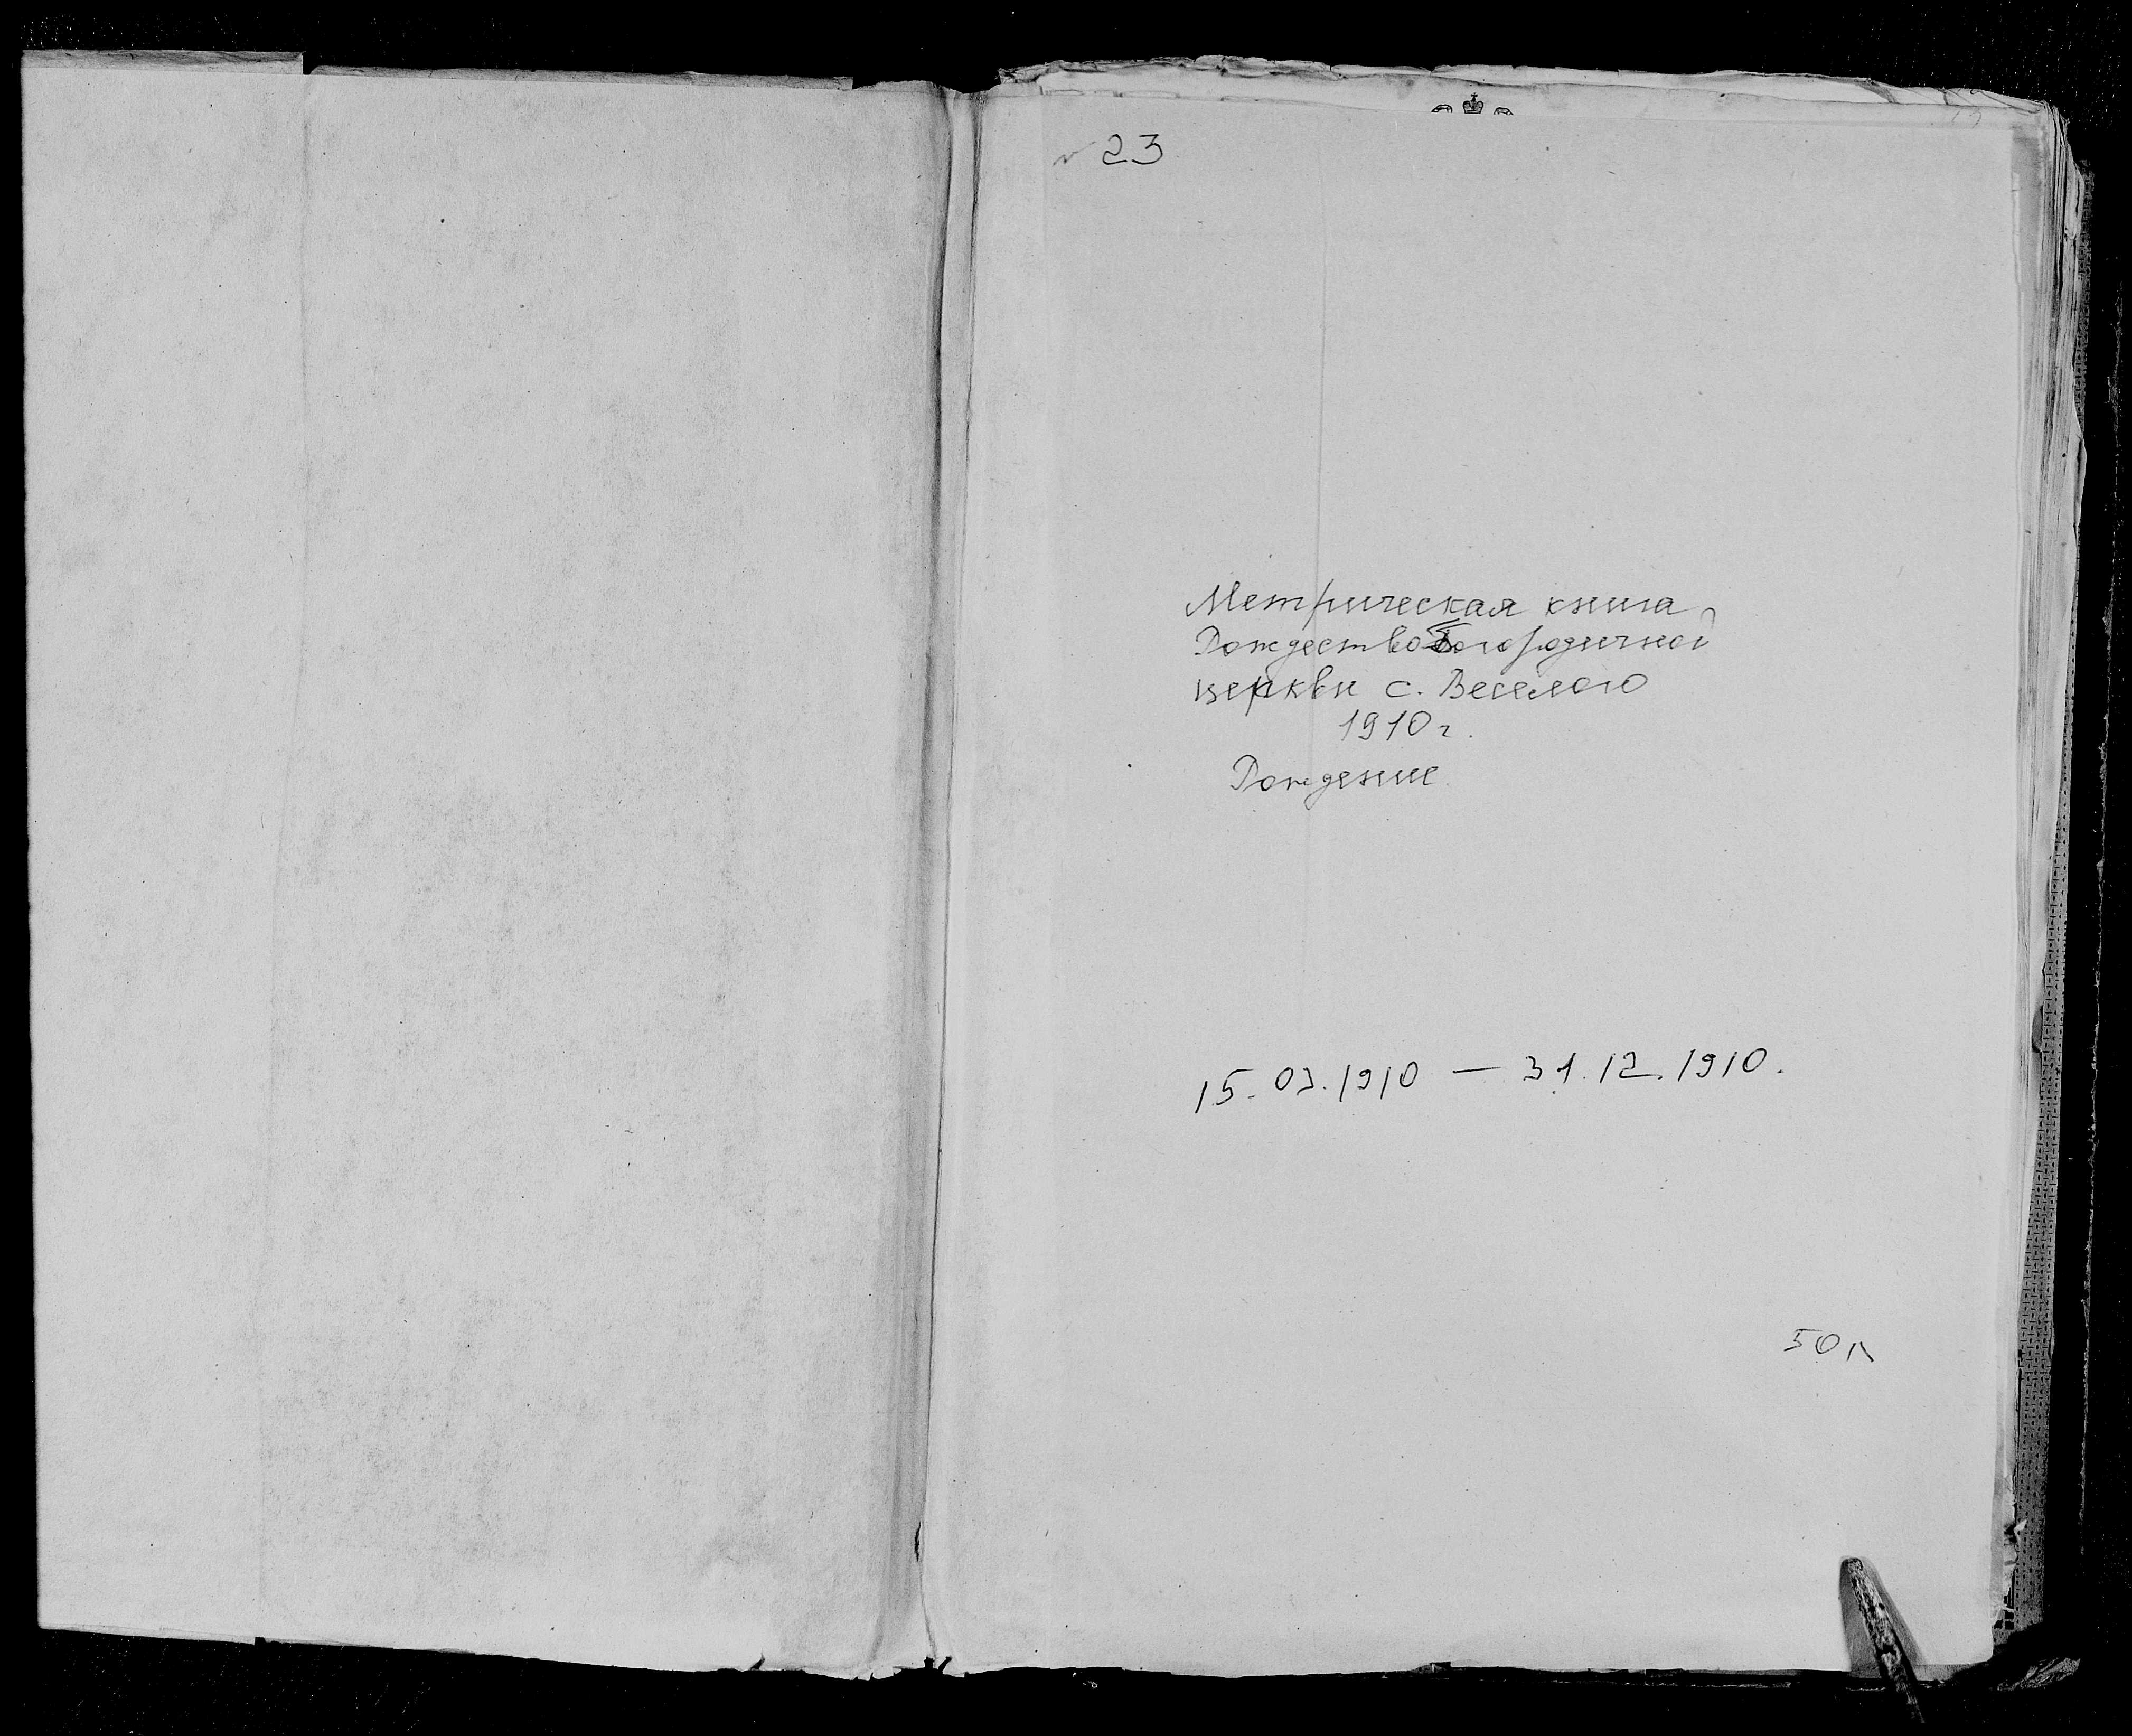 23
Метрическая книга
РождествоБогородичной
церкви с. Веселого
1910 г.
Рождение.
15.03.1910 — 31.12.1910.
50 л